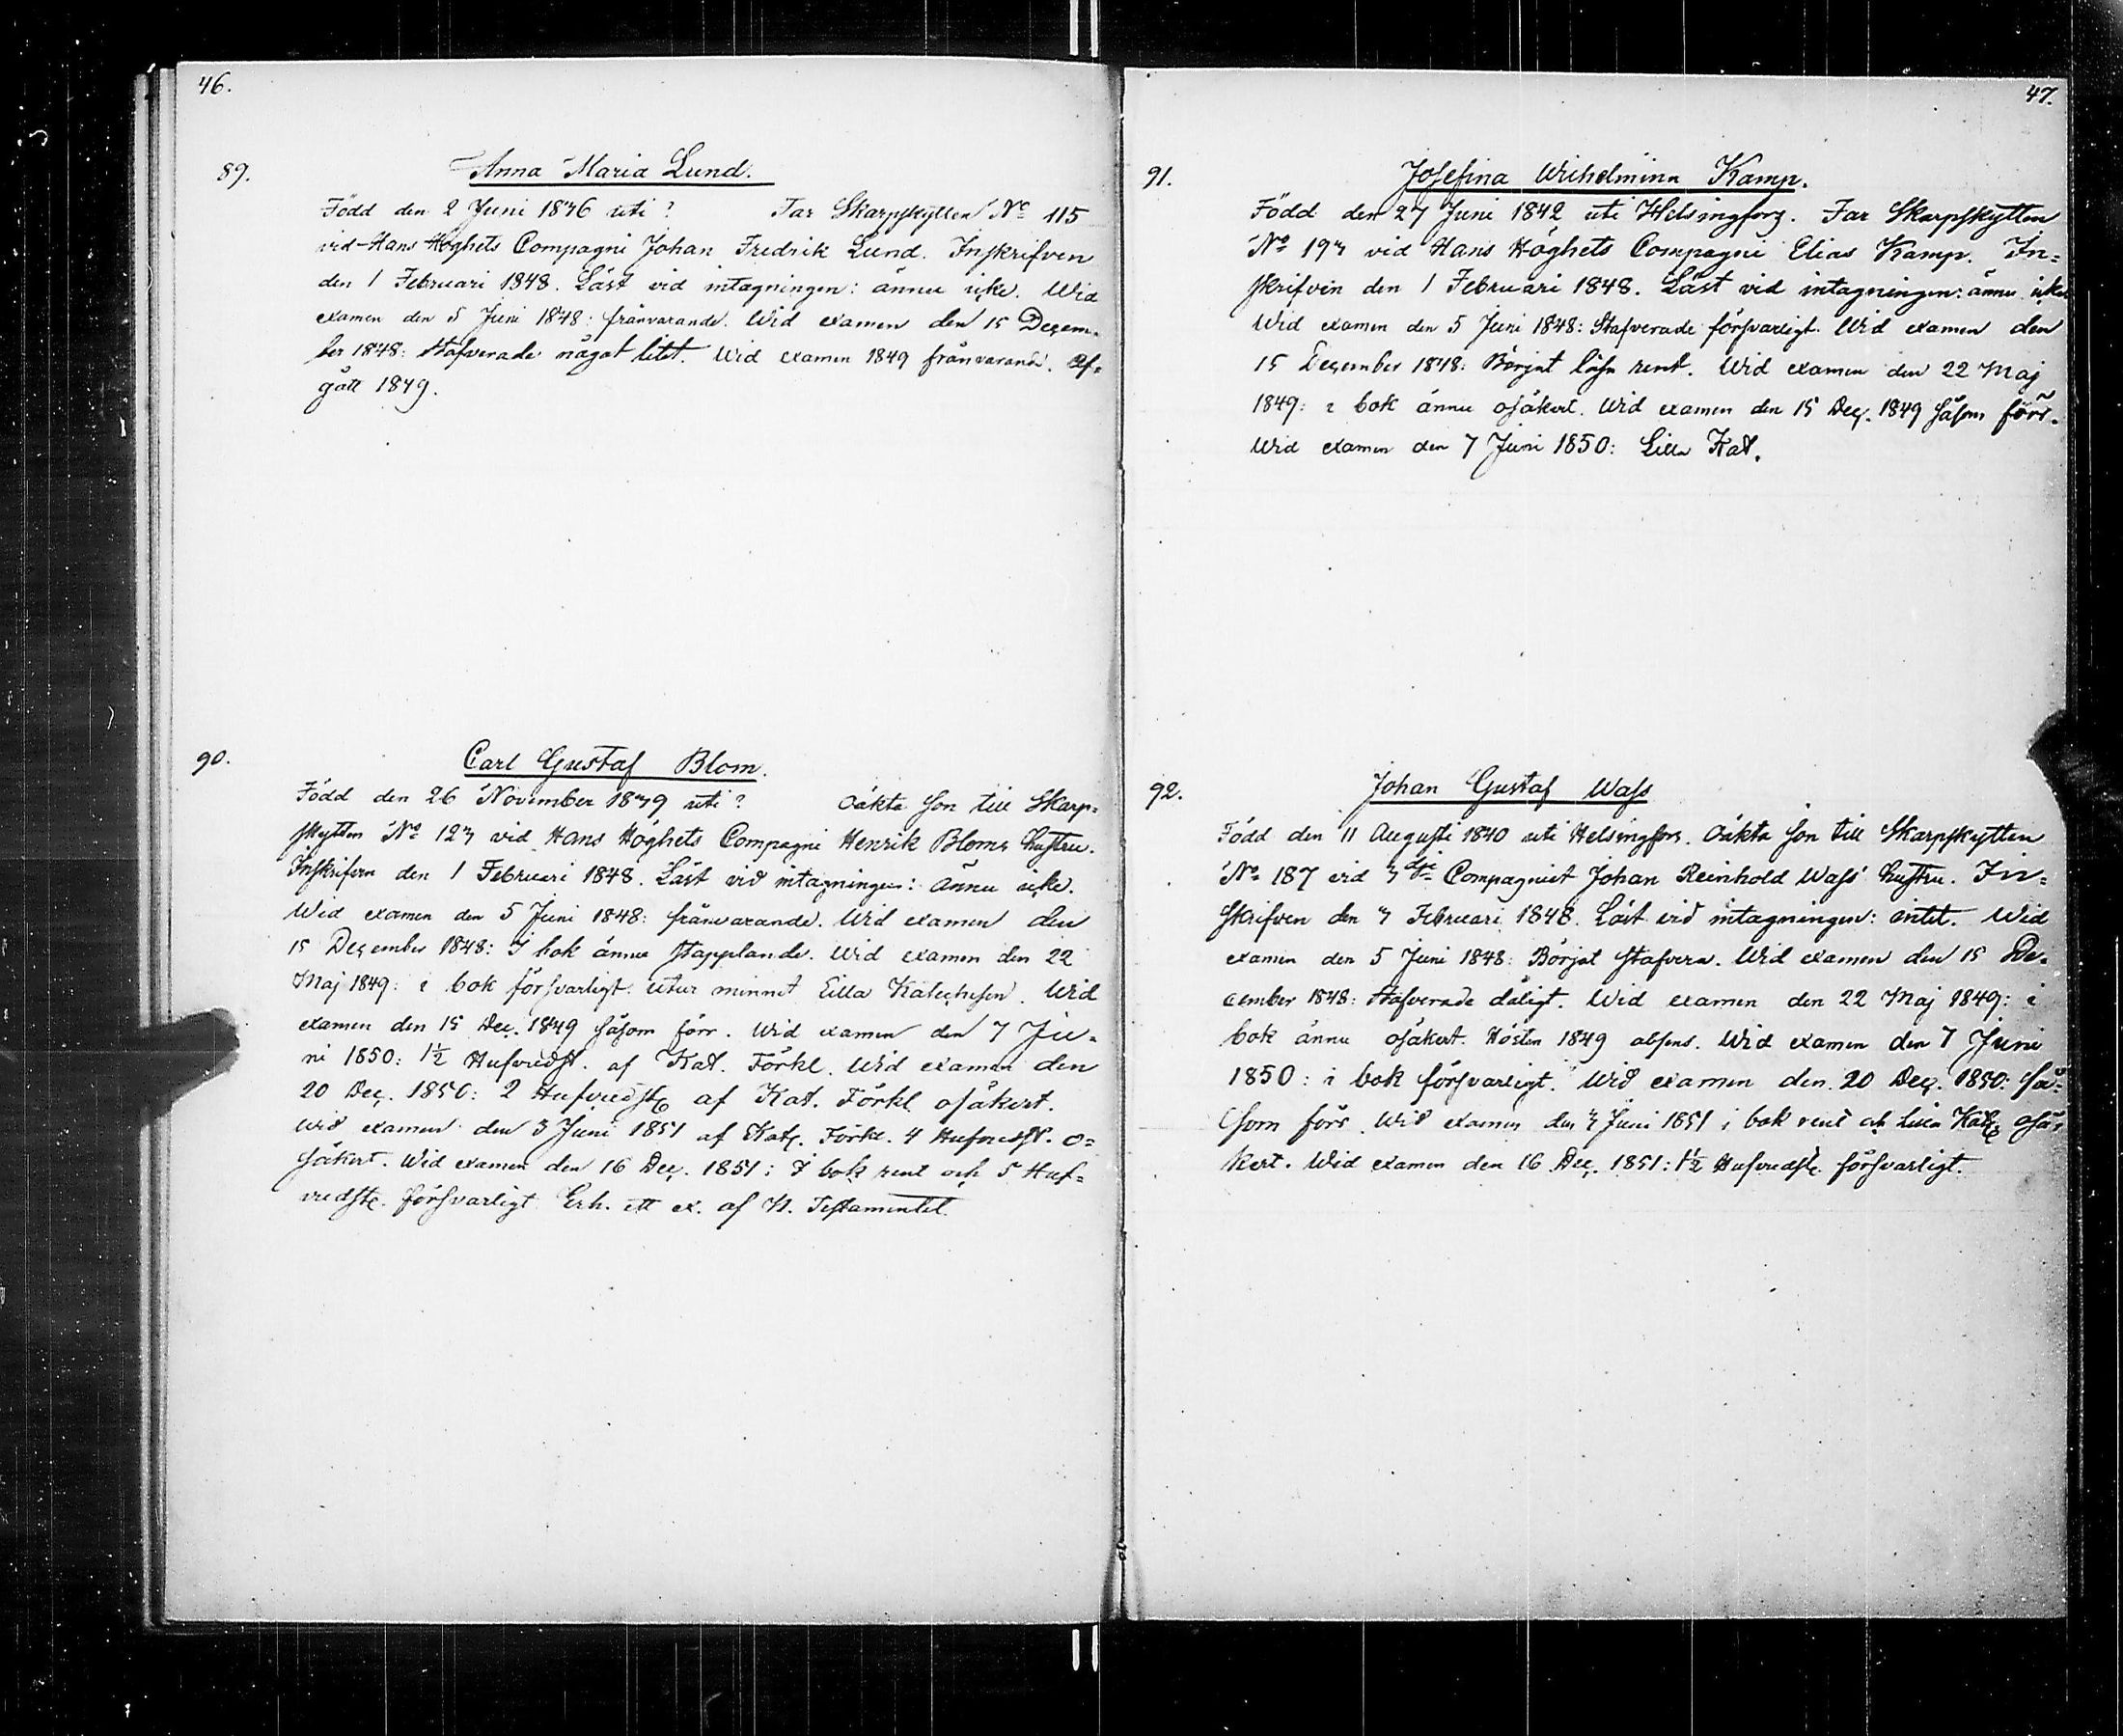 46.
89.
Anna Maria Lund.
Född den 2 Juni 1836 uti? Far Skarpskytten No 115
vid Hans Höghets Compagni Johan Fredrik Lund. Inskrifven
den 1 Februari 1848. Läst vid intagningen: ännu icke. Wid
examen den 5 Juni 1848: frånvarande. Wid examen den 15 Decem-
ber 1848: Stafverade något litet. Wid examen 1849 frånvarande. Af-
gått 1849.
90.
Carl Gustaf Blom.
Född den 26 November 1839 uti? Oäkta son till Skarp-
skytten No 123 vid Hans Höghets Compagni Henrik Bloms hustru.
Inskrifven den 1 Februari 1848. Läst vid intagningen: ännu icke.
Wid examen den 5 Juni 1848: frånvarande. Wid examen den
15 December 1848: I bok ännu stapplande. Wid examen den 22
Maj 1849: i bok försvarligt utur minnet Lilla Katechesen. Wid
examen den 15 Dec. 1849 såsom förr. Wid examen den 7 Ju-
ni 1850: 1½ Hufvudst. af Kat. Förkl. Wid examen den
20 Dec. 1850: 2 Hufvudst. af Kat. Förkl. osäkert.
Wid examen den 3 Juni 1851 af Kat. Förkl. 4 Hufvudst. o-
säkert. Wid examen den 16 Dec. 1851: I bok rent och 5 Huf-
vudst. försvarligt Erh. ett ex. af N. Testamentet.
47.
91.
Josefina Wilhelmina Kamp.
Född den 27 Juni 1842 uti Helsingfors. Far Skarpskytten
No 193 vid Hans Höghets Compagni Elias Kamp. In-
skrifven den 1 Februari 1848. Läst vid intagningen: ännu icke
Wid examen den 5 Juni 1848: Stafverade försvarligt. Wid examen den
15 December 1848: Börjat läsa rent. Wid examen den 22 Maj
1849: i bok ännu osäkert. Wid examen den 15 Dec. 1849 såsom förr.
Wid examen den 7 Juni 1850: Lilla Kat.
92.
Johan Gustaf Wass
Född den 11 Augusti 1840 uti Helsingfors. Oäkta son till Skarpskytten
No 187 vid 3dje Compagniet Johan Reinhold Wass' hustru. In-
skrifven den 3 Februari 1848. Läst vid intagningen: intet. Wid
examen den 5 Juni 1848: Börjat stafvera. Wid examen den 15 De-
cember 1848: Stafverade dåligt. Wid examen den 22 Maj 1849: i
bok ännu osäkert. Hösten 1849 absens. Wid examen den 7 Juni
1850: i bok försvarligt. Wid examen den 20 Dec. 1850: så-
som förr. Wid examen den 3 Juni 1851 i bok rent och Lilla Kat. osä-
kert. Wid examen den 16 Dec. 1851: 1½ Hufvudst. försvarligt.